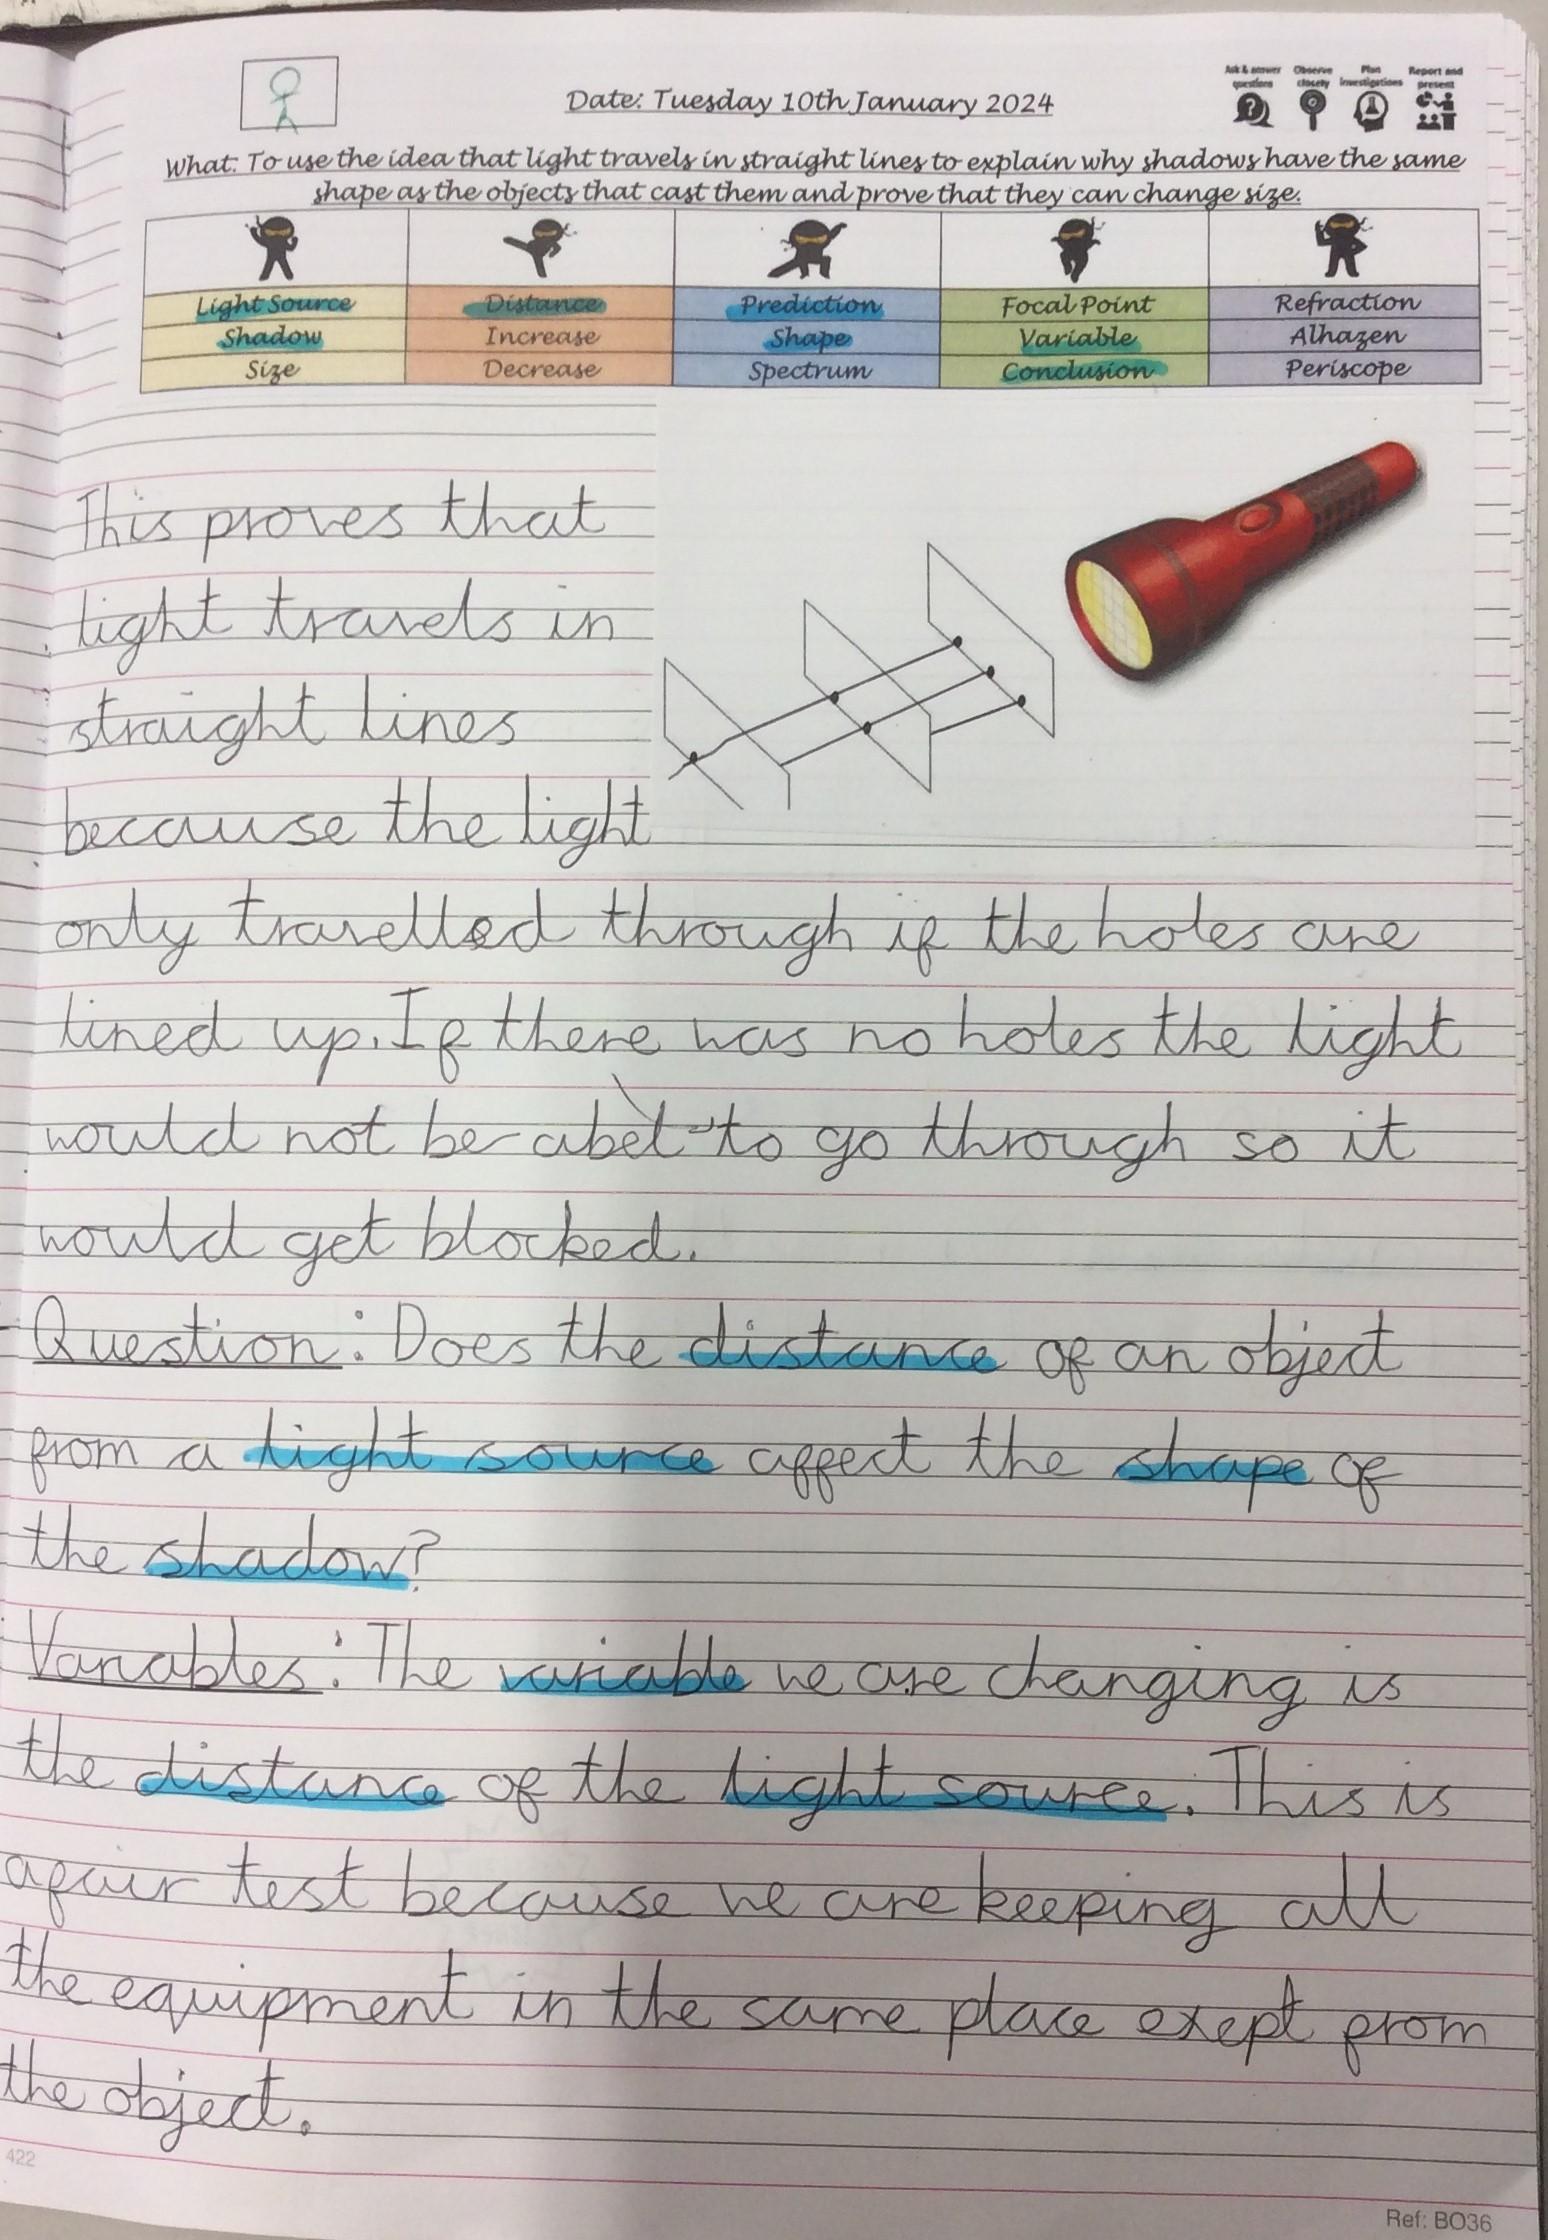 Ask & answer questions
Observe closely
Plan investigations
Report and present
Date: Tuesday 10th January 2024
What: To use the idea that light travels in straight lines to explain why shadows have the same
shape as the objects that cast them and prove that they can change size.
Light Source Distance Prediction Focal Point Refraction
Shadow Increase Shape Variable Alhazen
Size Decrease Spectrum Conclusion Periscope
This proves that
light travels in
straight lines
because the light
only travelled through if the holes are
lined up. If there was no holes the light
would not be abel to go through so it
would get blocked.
Question: Does the distance of an object
from a light source affect the shape of
the shadow?
Variables: The variable we are changing is
the distance of the light source. This is
a fair test because we are keeping all
the equipment in the same place exept from
the object.
422
Ref: BO36